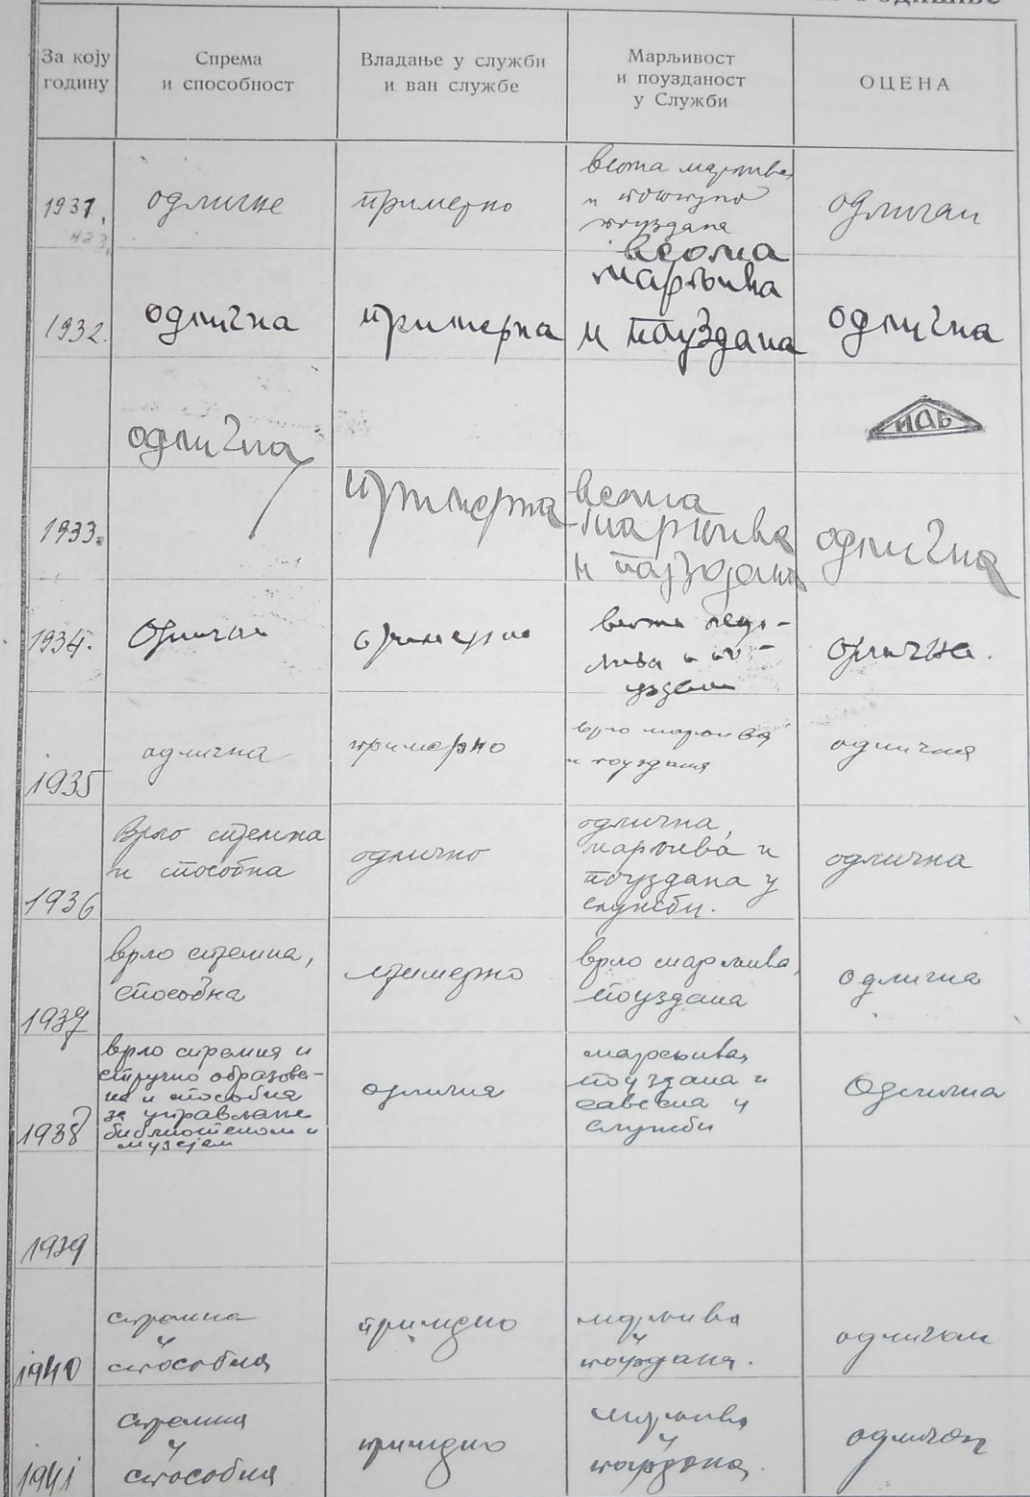 За коју
годину
Спрема
и способност
Владање у служби
и ван службе
Марљивост
и поузданост
у Служби
ОЦЕНА
1931.
одличне
примерно
веома марљива
и
поуздана
одличан
1932.
одлична
примерна
веома
марљива
и поуздана
одлична
ИАБ
1933.
одлична
примерна
веома
марљива
и поуздана
одлична
1934.
одличан
примерно
веома
љива и по-
уздана
одлична.
1935
одлична
примерно
врло марљива
и поуздана
одлична
1936
Врло спремна
и способна
одлично
одлична,
марљива и
поуздана у
служби.
одлична
1937
врло спремна,
способна
примерно
врло марљива,
поуздана
одлична
1938
врло спремна и
стручно образова-
на и способна
за управљање
библиотеком и
музејем
одлична
марљива,
поуздана и
савесна у
служби
Одлична
1939
1940
спремна
и
способна
примерно
марљива
и
поуздана.
одличан
1941
спремна
и
способна
примерно
марљива
и
поуздана.
одличан